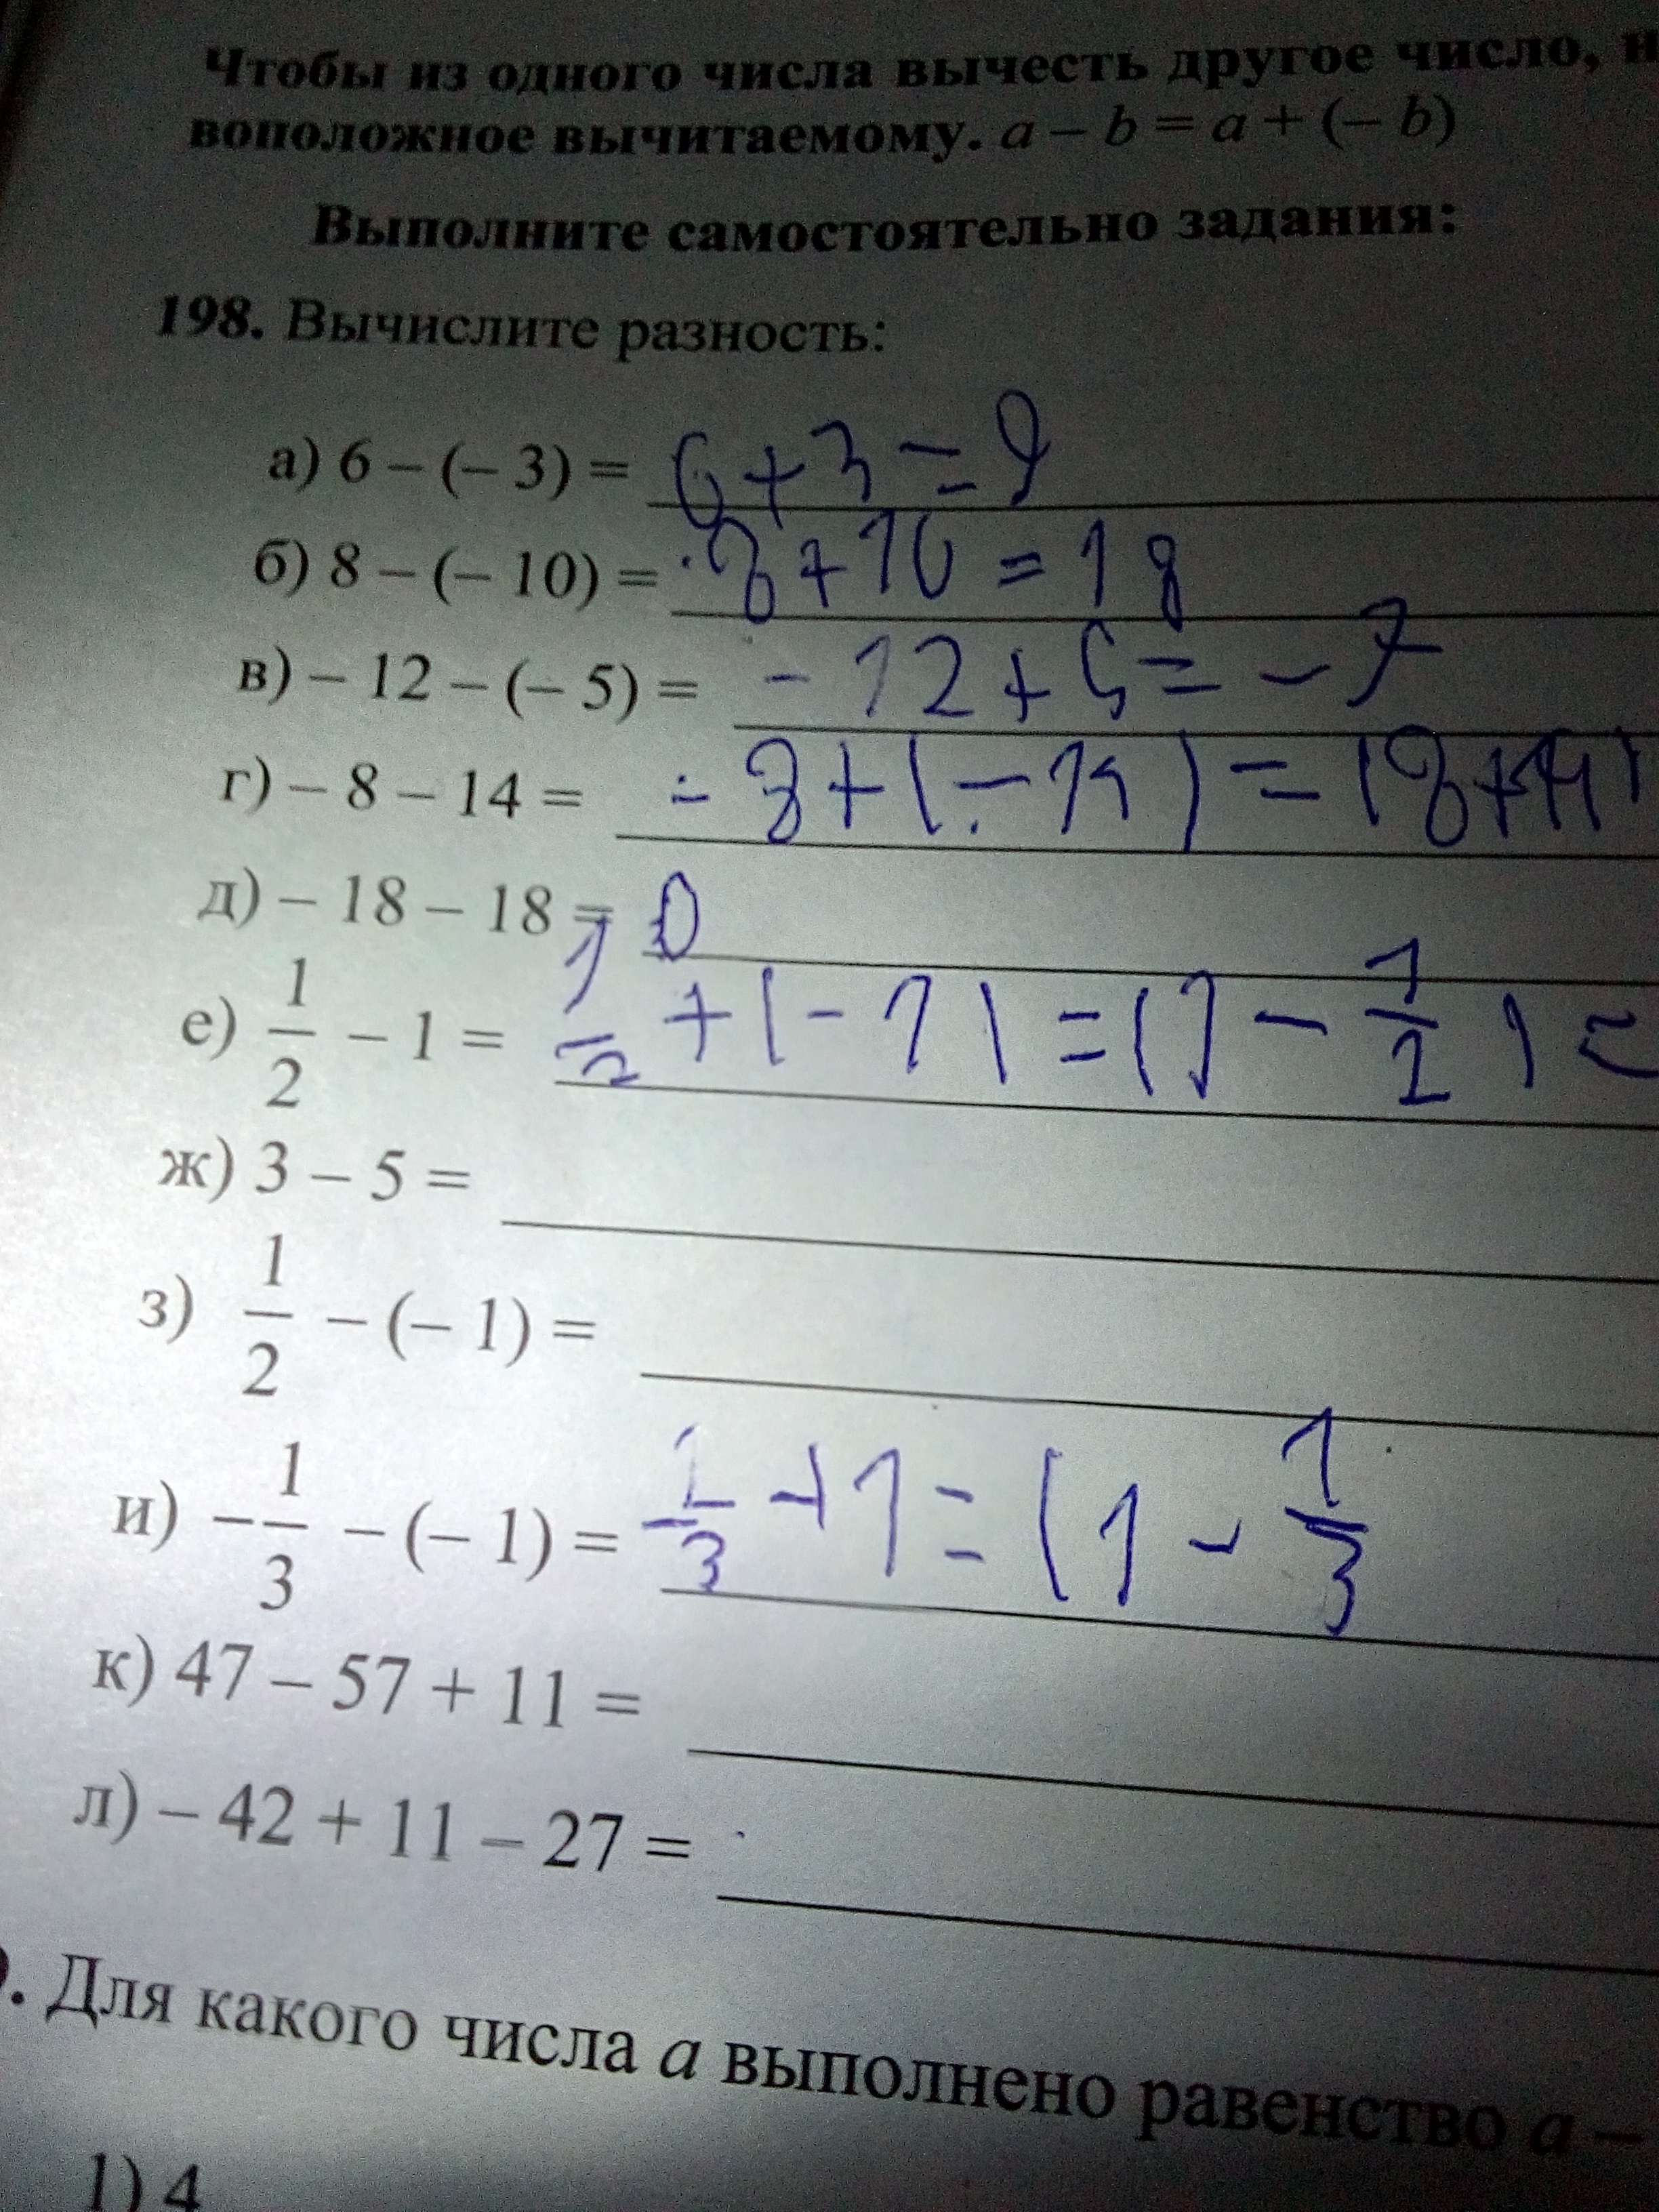 Чтобы из одного числа вычесть другое число,
воположное вычитаемому. a – b = a + (– b)
Выполните самостоятельно задания:
198. Вычислите разность:
а) 6 – (– 3) = 6 + 3 = 9
б) 8 – (– 10) = 8 + 10 = 18
в) – 12 – (– 5) = - 12 + 5 = - 7
г) – 8 – 14 = - 8 + (- 14) = (8+14)
д) – 18 – 18 = 0
е) 1/2 – 1 = 1/2 + (- 1) = (1 - 1/2) =
ж) 3 – 5 =
з) 1/2 – (– 1) =
и) – 1/3 – (– 1) = - 1/3 + 1 = (1 - 1/3
к) 47 – 57 + 11 =
л) – 42 + 11 – 27 =
. Для какого числа a выполнено равенство a –
1) 4